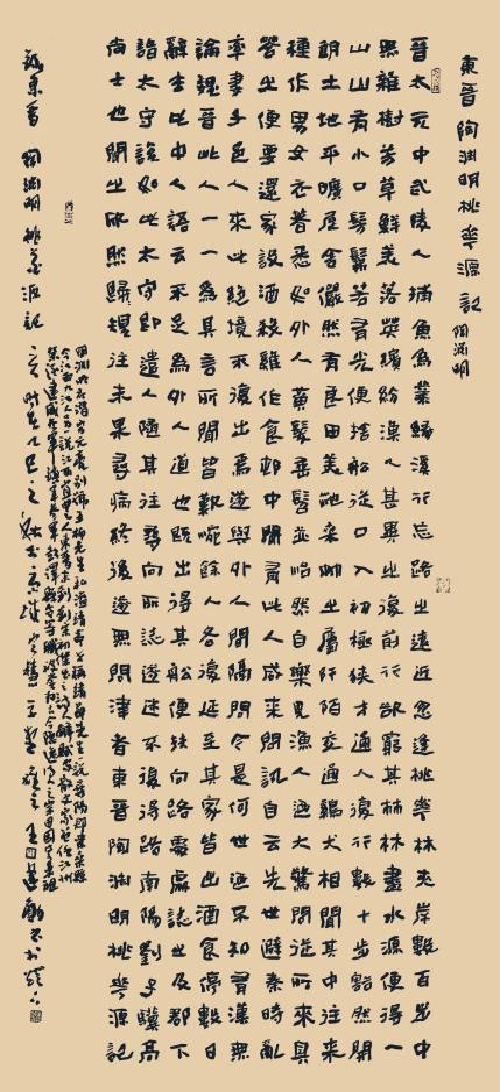 東晉陶淵明桃華源記 陶淵明
晉太元中武陵人捕魚為業緣溪行忘路之遠近忽逢桃華林夾岸數百步中
無雜樹芳草鮮美落英繽紛漁人甚異之復前行欲窮其林林盡水源便得一
山山有小口髣髴若有光便捨船從口入初極狹才通人復行數十步豁然開
朗土地平曠屋舍儼然有良田美池桑竹之屬阡陌交通雞犬相聞其中往來
種作男女衣著悉如外人黃髮垂髫並怡然自樂見漁人迺大驚問從所來具
答之便要還家設酒殺雞作食邨中聞有此人咸來問訊自云先世避秦時亂
率妻子邑人來此絕境不復出焉遂與外人間隔問今是何世迺不知有漢無
論魏晉此人一一為具言所聞皆歎惋餘人各復延至其家皆出酒食停數日
辭去此中人語云不足為外人道也既出得其船便扶向路處處誌之及郡下
詣太守說如此太守即遣人隨其往尋向所誌遂迷不復得路南陽劉子驥高
尚士也聞之欣然歸規往未果尋病終後遂無問津者東晉陶淵明桃華源記
陶淵明
錄東晉陶淵明桃花源記